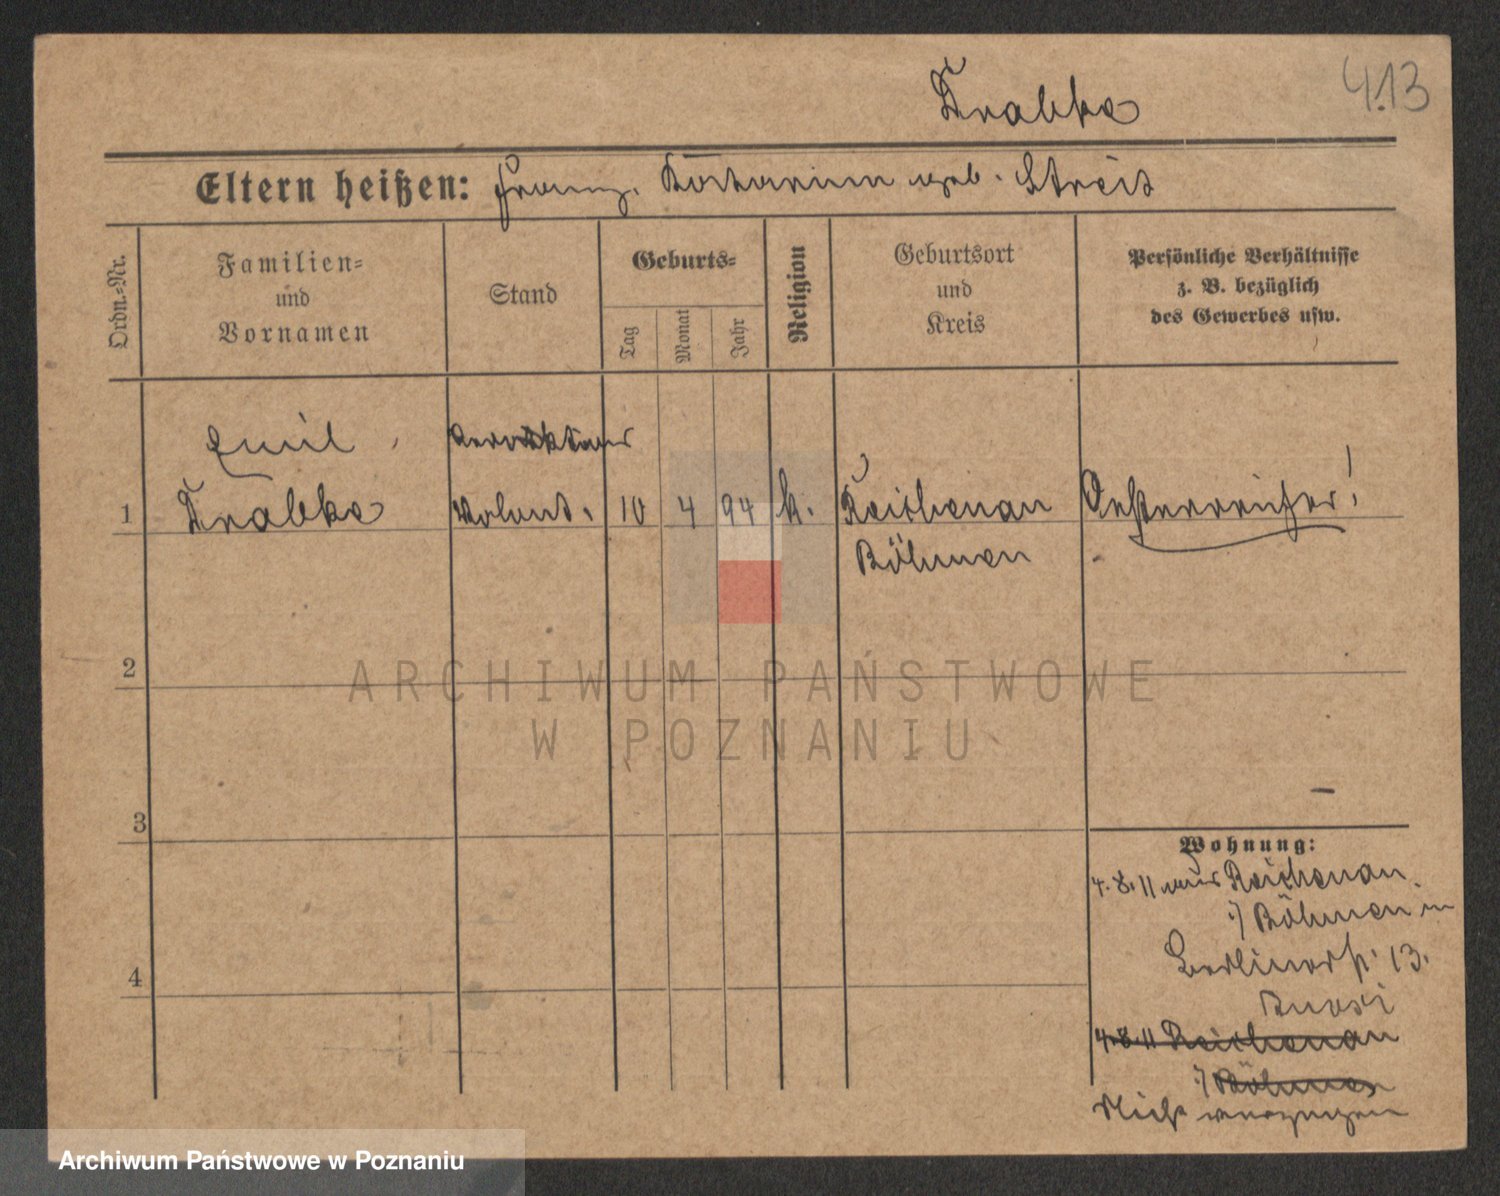 Krabka
413
Eltern heißen: Franz, Katharina geb. Streit
Ordn.-Nr.
Familien-
und
Vornamen
Stand
Geburts-
Tag
Monat
Jahr
Religion
Geburtsort
und
Kreis
Persönliche Verhältnisse
z. B. bezüglich
des Gewerbes usw.
Emil
1 Krabka Volont. 10 4 94 k. Reichenau Oesterreicher!
Böhmen
2
ARCHIWUM PAŃSTWOWE
W POZNANIU
3
Wohnung:
4.8.11 aus Reichenau
i/ Böhmen in
Berlinerstr. 13.
4
4.8.11 Reichenau
i/ Böhmen
Nicht
Archiwum Państwowe w Poznaniu